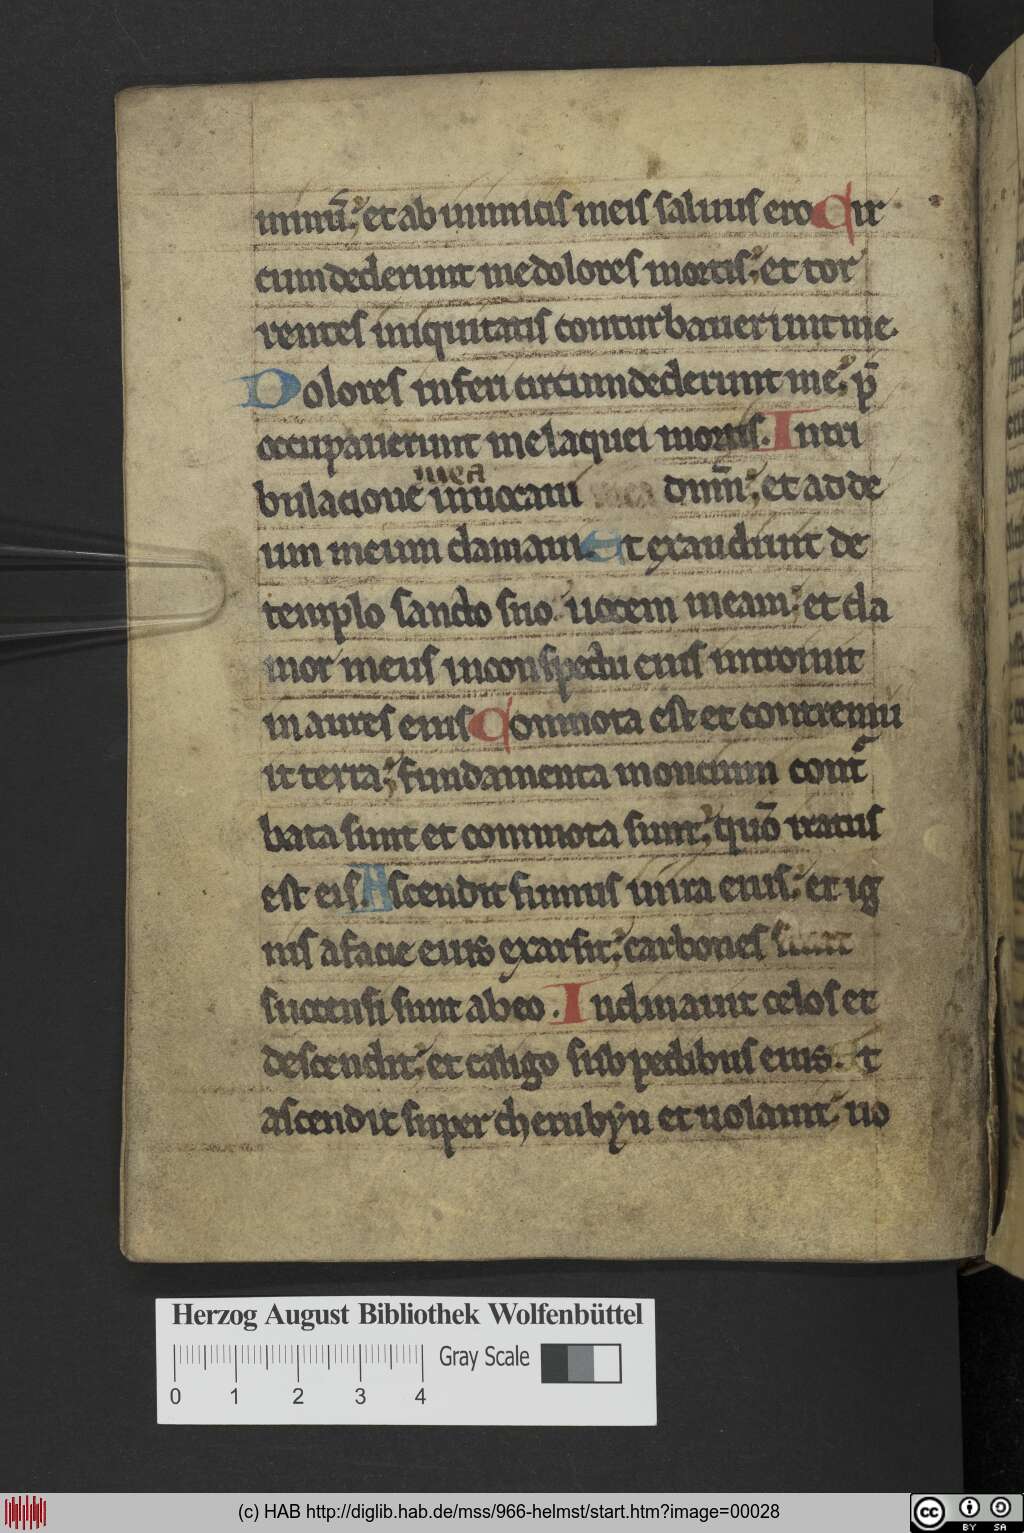 minū. et ab inimicis meis saluus ero Cir
cumdederunt me dolores mortis. et tor
rentes iniquitatis conturbauerunt me.
Dolores inferi circumdederunt me. p̄
occupauerunt me laquei mortis. In tri
mea
bulacione inuocaui mea dnm̄. et ad de
um meum clamaui. Et exaudiuit de
templo sancto suo uocem meam. et cla
mor meus in conspectu eius introiuit
in aures eius Commota est et contremu
it terra. fundamenta moncium cont᷑
bata sunt et commota sunt. quō iratus
est eis. Ascendit fumus in ira eius. et ig
nis a facie eius exarsit. carbones sunt
succensi sunt ab eo. Inclinauit celos et
descendit. et caligo sub pedibus eius. t
ascendit super cherubyn et uolauit. uo
Herzog August Bibliothek Wolfenbüttel
Gray Scale
0 1 2 3 4
(c) HAB http://diglib.hab.de/mss/966-helmst/start.htm?image=00028
cc BY SA